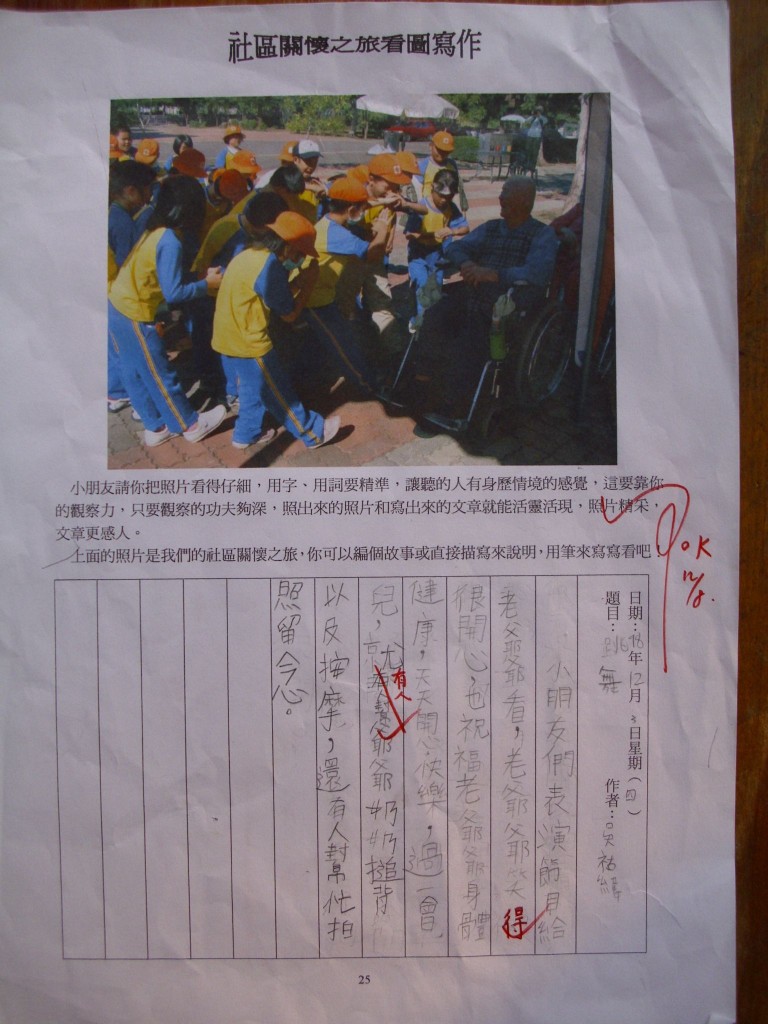 社區關懷之旅看圖寫作
小朋友請你把照片看得仔細，用字、用詞要精準，讓聽的人有身歷情境的感覺，這要靠你
的觀察力，只要觀察的功夫夠深，照出來的照片和寫出來的文章就能活靈活現，照片精采，
文章更感人。
上面的照片是我們的社區關懷之旅，你可以編個故事或直接描寫來說明，用筆來寫寫看吧！
OK
12/8.
日期：98年12月3日星期（四）
題目：跳舞 作者：吳祐
小朋友們表演節目給
老爺爺看，老爺爺笑得
很開心，也祝福老爺爺身體
健康，天天開心快樂，過一會
兒，就有人幫爺爺奶奶搥背
以及按摩，還有人幫忙拍
照留念。
25